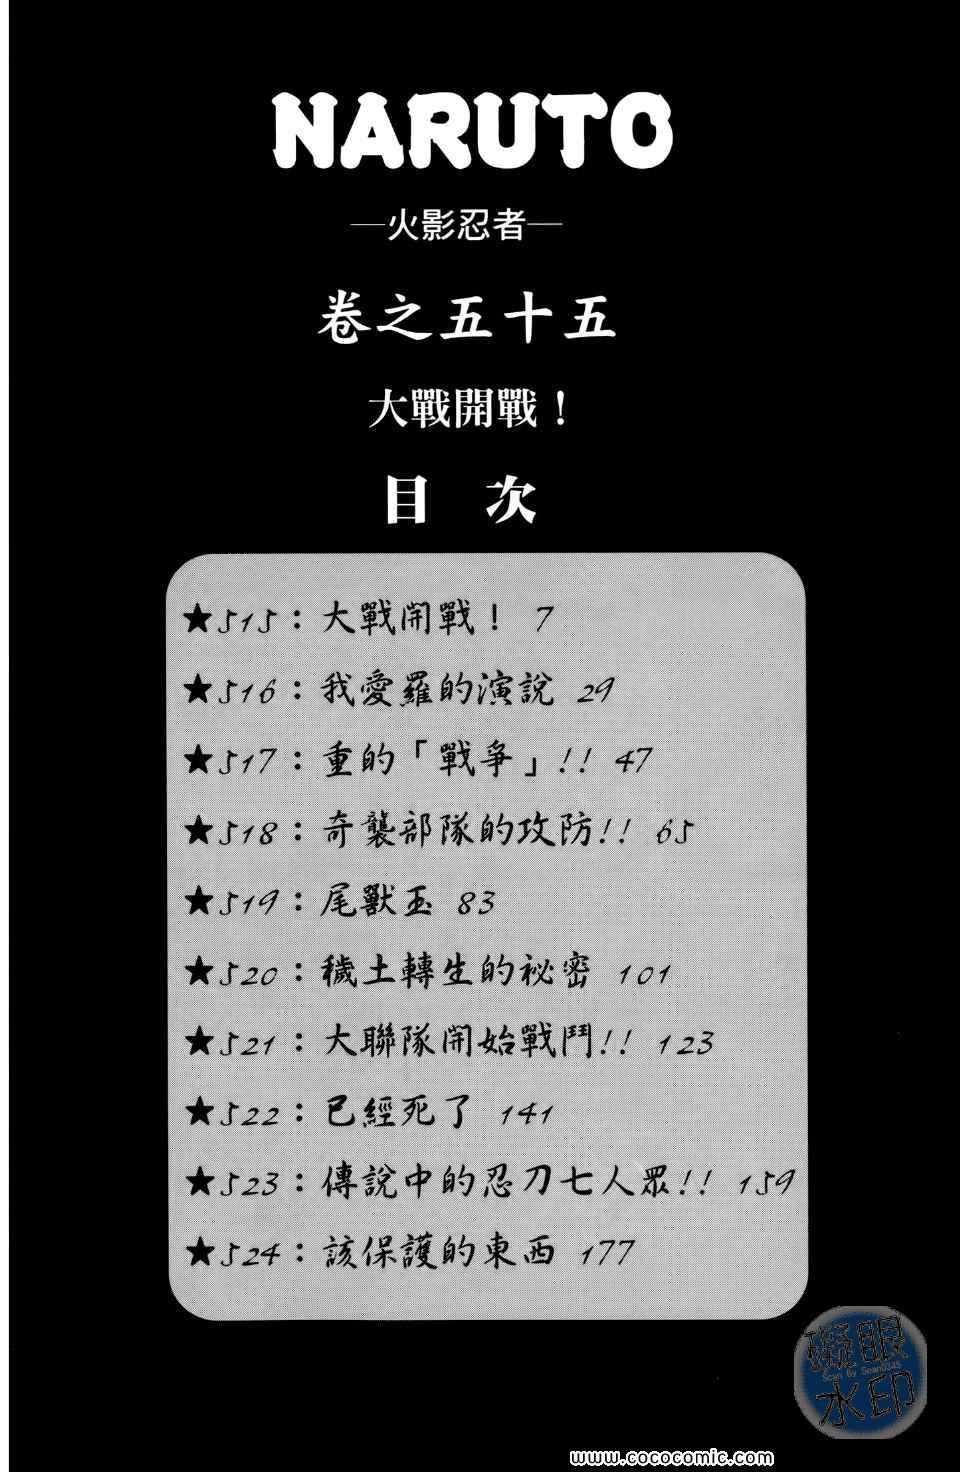 NARUTO
—火影忍者—
卷之五十五
大戰開戰！
目 次
★515：大戰開戰！ 7
★516：我愛羅的演說 29
★517：重的「戰爭」!! 47
★518：奇襲部隊的攻防!! 65
★519：尾獸玉 83
★520：穢土轉生的祕密 101
★521：大聯隊開始戰鬥!! 123
★522：已經死了 141
★523：傳說中的忍刀七人眾!! 159
★524：該保護的東西 177
眼
水印
www.cococomic.com